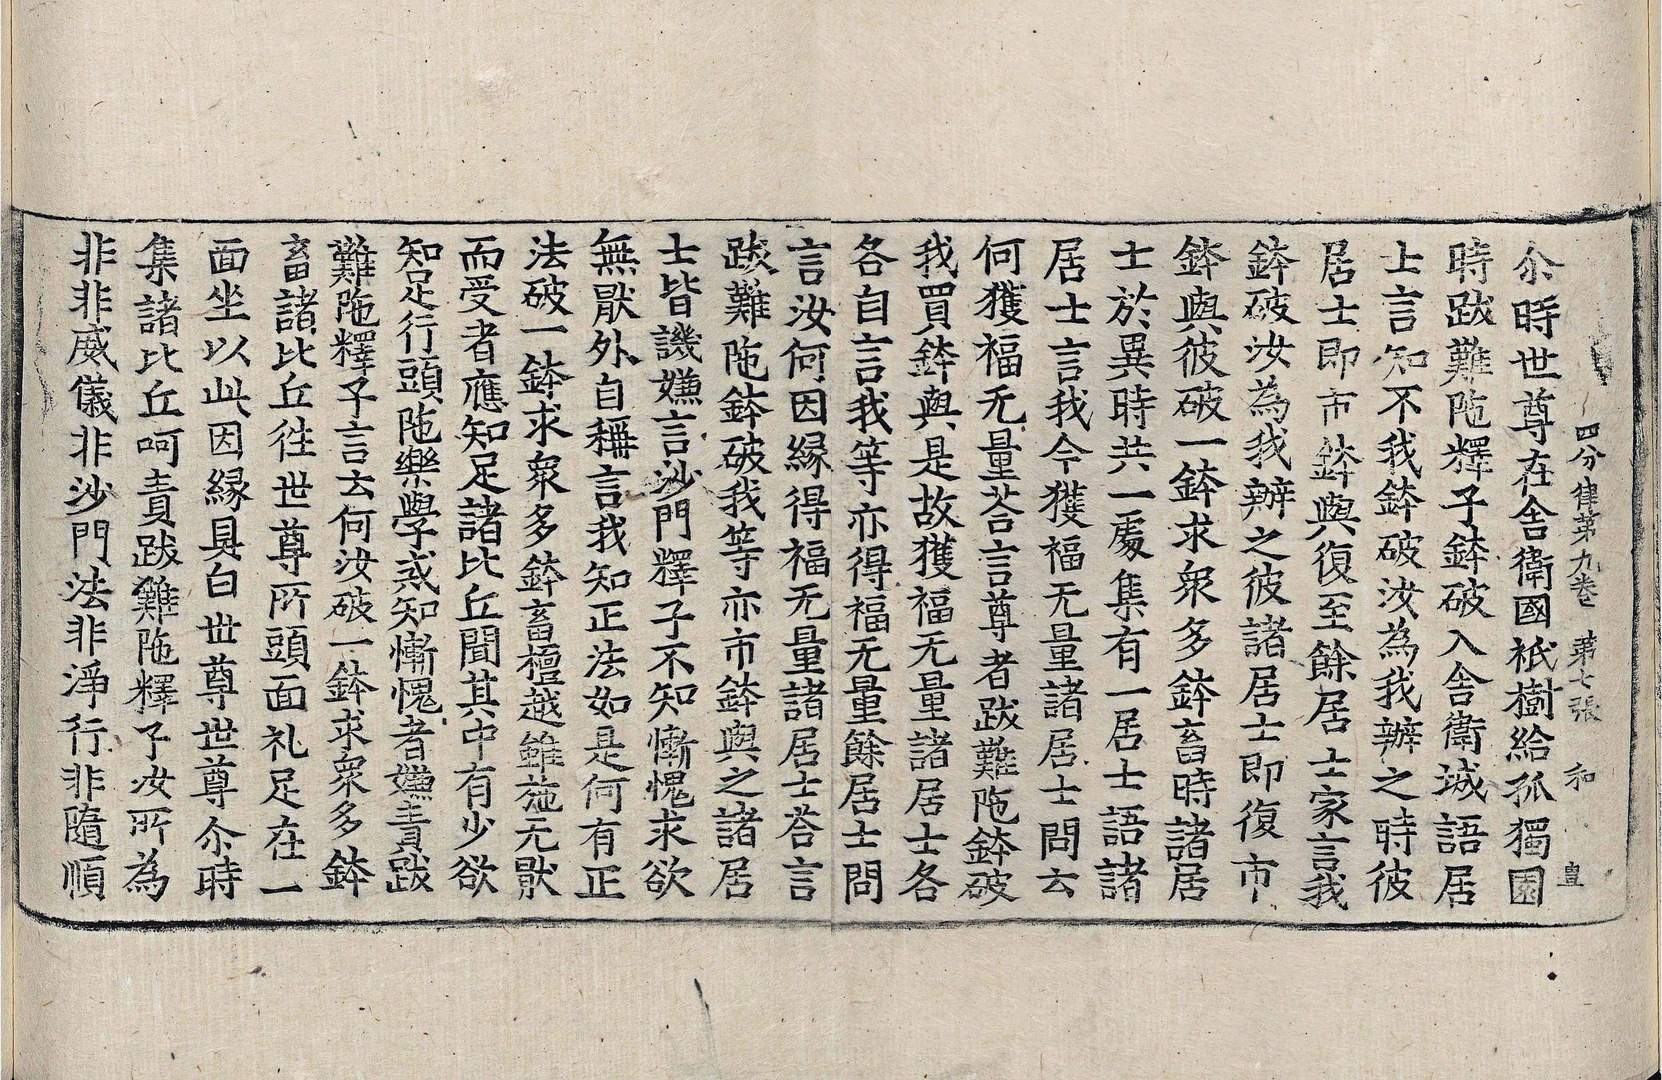 四分律第九卷 第七張 和 㫖
尒時世尊在舍衛國祇樹給孤獨園
時跋難陁釋子鉢破入舍衛城語居
士言知不我鉢破汝為我辦之時彼
居士即市鉢與復至餘居士家言我
鉢破汝為我辦之彼諸居士即復市
鉢與彼破一鉢求衆多鉢畜時諸居
士於異時共一處集有一居士語諸
居士言我今獲福无量諸居士問云
何獲福无量荅言尊者跋難陁鉢破
我買鉢與是故獲福无量諸居士各
各自言我等亦得福无量餘居士問
言汝何因縁得福无量諸居士荅言
跋難陁鉢破我等亦市鉢與之諸居
士皆譏嫌言沙門釋子不知慚愧求欲
無猒外自稱言我知正法如是何有正
法破一鉢求衆多鉢畜檀越雖施无猒
而受者應知足諸比丘聞其中有少欲
知足行頭陁樂學戒知慚愧者嫌責跋
難陁釋子言云何汝破一鉢求衆多鉢
畜諸比丘徃世尊所頭面礼足在一
面坐以此因縁具白世尊世尊尒時
集諸比丘呵責跋難陁釋子汝所為
非非威儀非沙門法非淨行非隨順